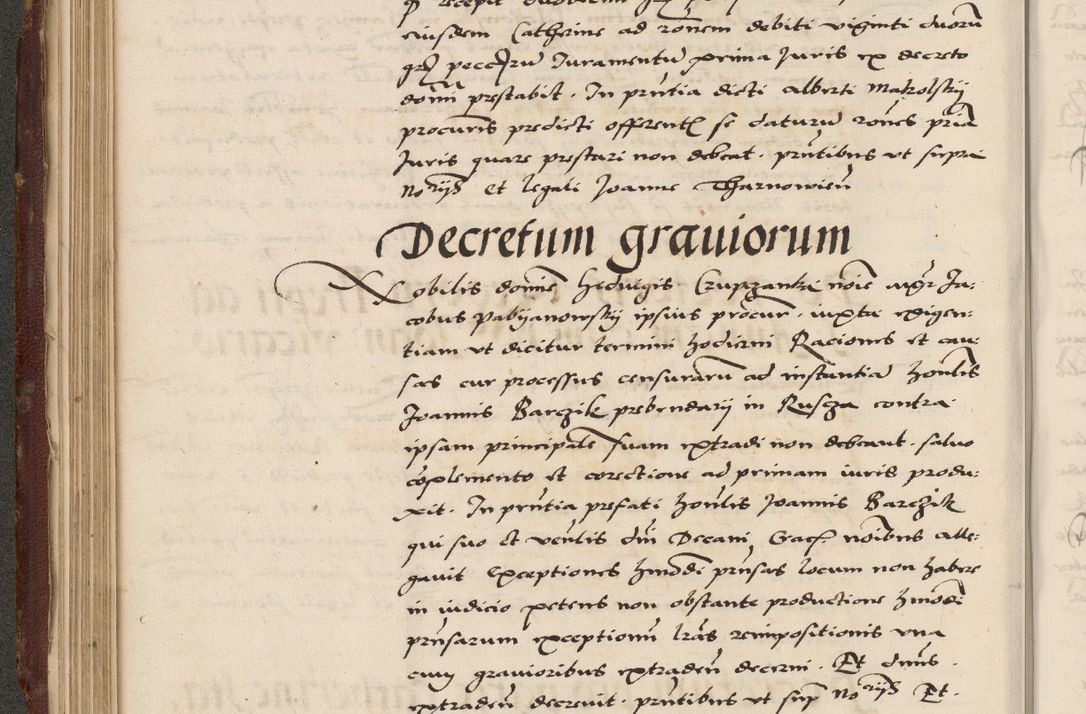 eiusdem Catherine ad rōnem debiti viginti duorū
juramentū prima Juris ex decreto
domī prestabit. In prn̄tia dicti alberti Makolskij
procurīs predicti offerentꝭ se daturū rōnes pria
Juris quare prestari non debeat. prn̄tibus vt supra
Norijs et legali Joanne Tharnowien̄
Decretum grauiorum
Nobilis domīe Heduigis Crupzanke noīe mgr̄ Ja:
cobus Pabijanowskij ipsius procur. iuxta exigen:
tiam vt dicitur termini hodierni Raciones et cau:
sas cur processus censurarū ad instantiā honlīs
Joannis Barczik prebendarij in Rusza contra
ipsam principalē suam extradi non debeant. saluo
cōplemento et corectione ad primam iuris produ:
xit. In prn̄tia prefati honl̄is Joannis Barczik
qui suo et ven̄lis dn̄i Decani Cracꝭ noībus alle:
gauit exceptiones hmōdi prn̄sas locum non habere
in iudicio petens non obstante productione hmōdi
prn̄sarum exceptionū lrās reimpositionis vna
cum grauioribus extraden̄ decerni. Et dn̄us
extraden̄ decreuit. prn̄tibus vt sup̄ Norijs Et.